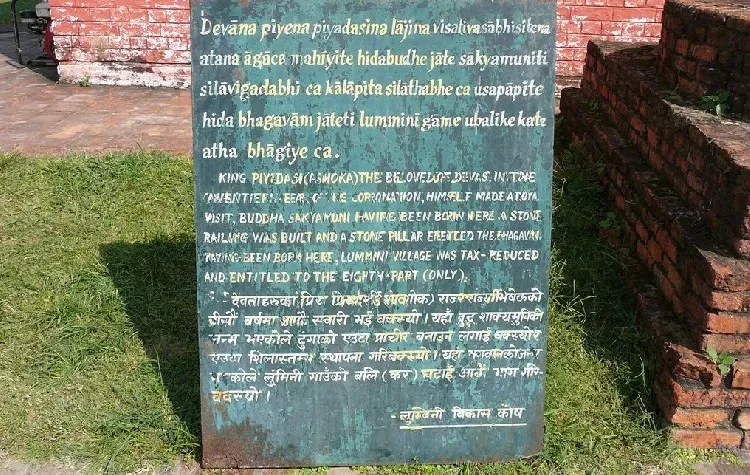 Devāna piyena piyadasina lājina visativasābhisitena
atana āgāca mahīyite hidabudhe jāte sākyamuniti
silāvigadabhi ca kālāpita silāthabhe ca usapāpite
hida bhagavaṁ jāteti lummini gāme ubalike kate
atha bhāgiye ca.
KING PIYADASI (ASHOKA) THE BELOVED OF DEVAS IN THE
TWENTIETH YEAR OF THE CORONATION, HIMSELF MADE A ROYAL
VISIT, BUDDHA SAKYAMUNI HAVING BEEN BORN HERE A STONE
RAILING WAS BUILT AND A STONE PILLAR ERECTED THE BHAGAVAN
HAVING BEEN BORN HERE, LUMMINI VILLAGE WAS TAX-REDUCED
AND ENTITLED TO THE EIGHTY-PART (ONLY).
देवताहरुका प्रिय प्रियदर्शी (अशोक) राजाले राज्याभिषेकको
वर्षमा आफै सवारी भई बक्स्यो। यहाँ बुद्ध शाक्यमुनिको
जन्म भएकोले ढुंगाको एउटा प्राचीर बनाउन लगाई बक्स्यो र
एउटा शिलास्तम्भ स्थापना गरिबक्स्यो। यहाँ
लुंमिनी गाउँको बलि (कर) घटाई आठौं भाग
बक्स्यो।
- लुम्बिनी विकास कोष